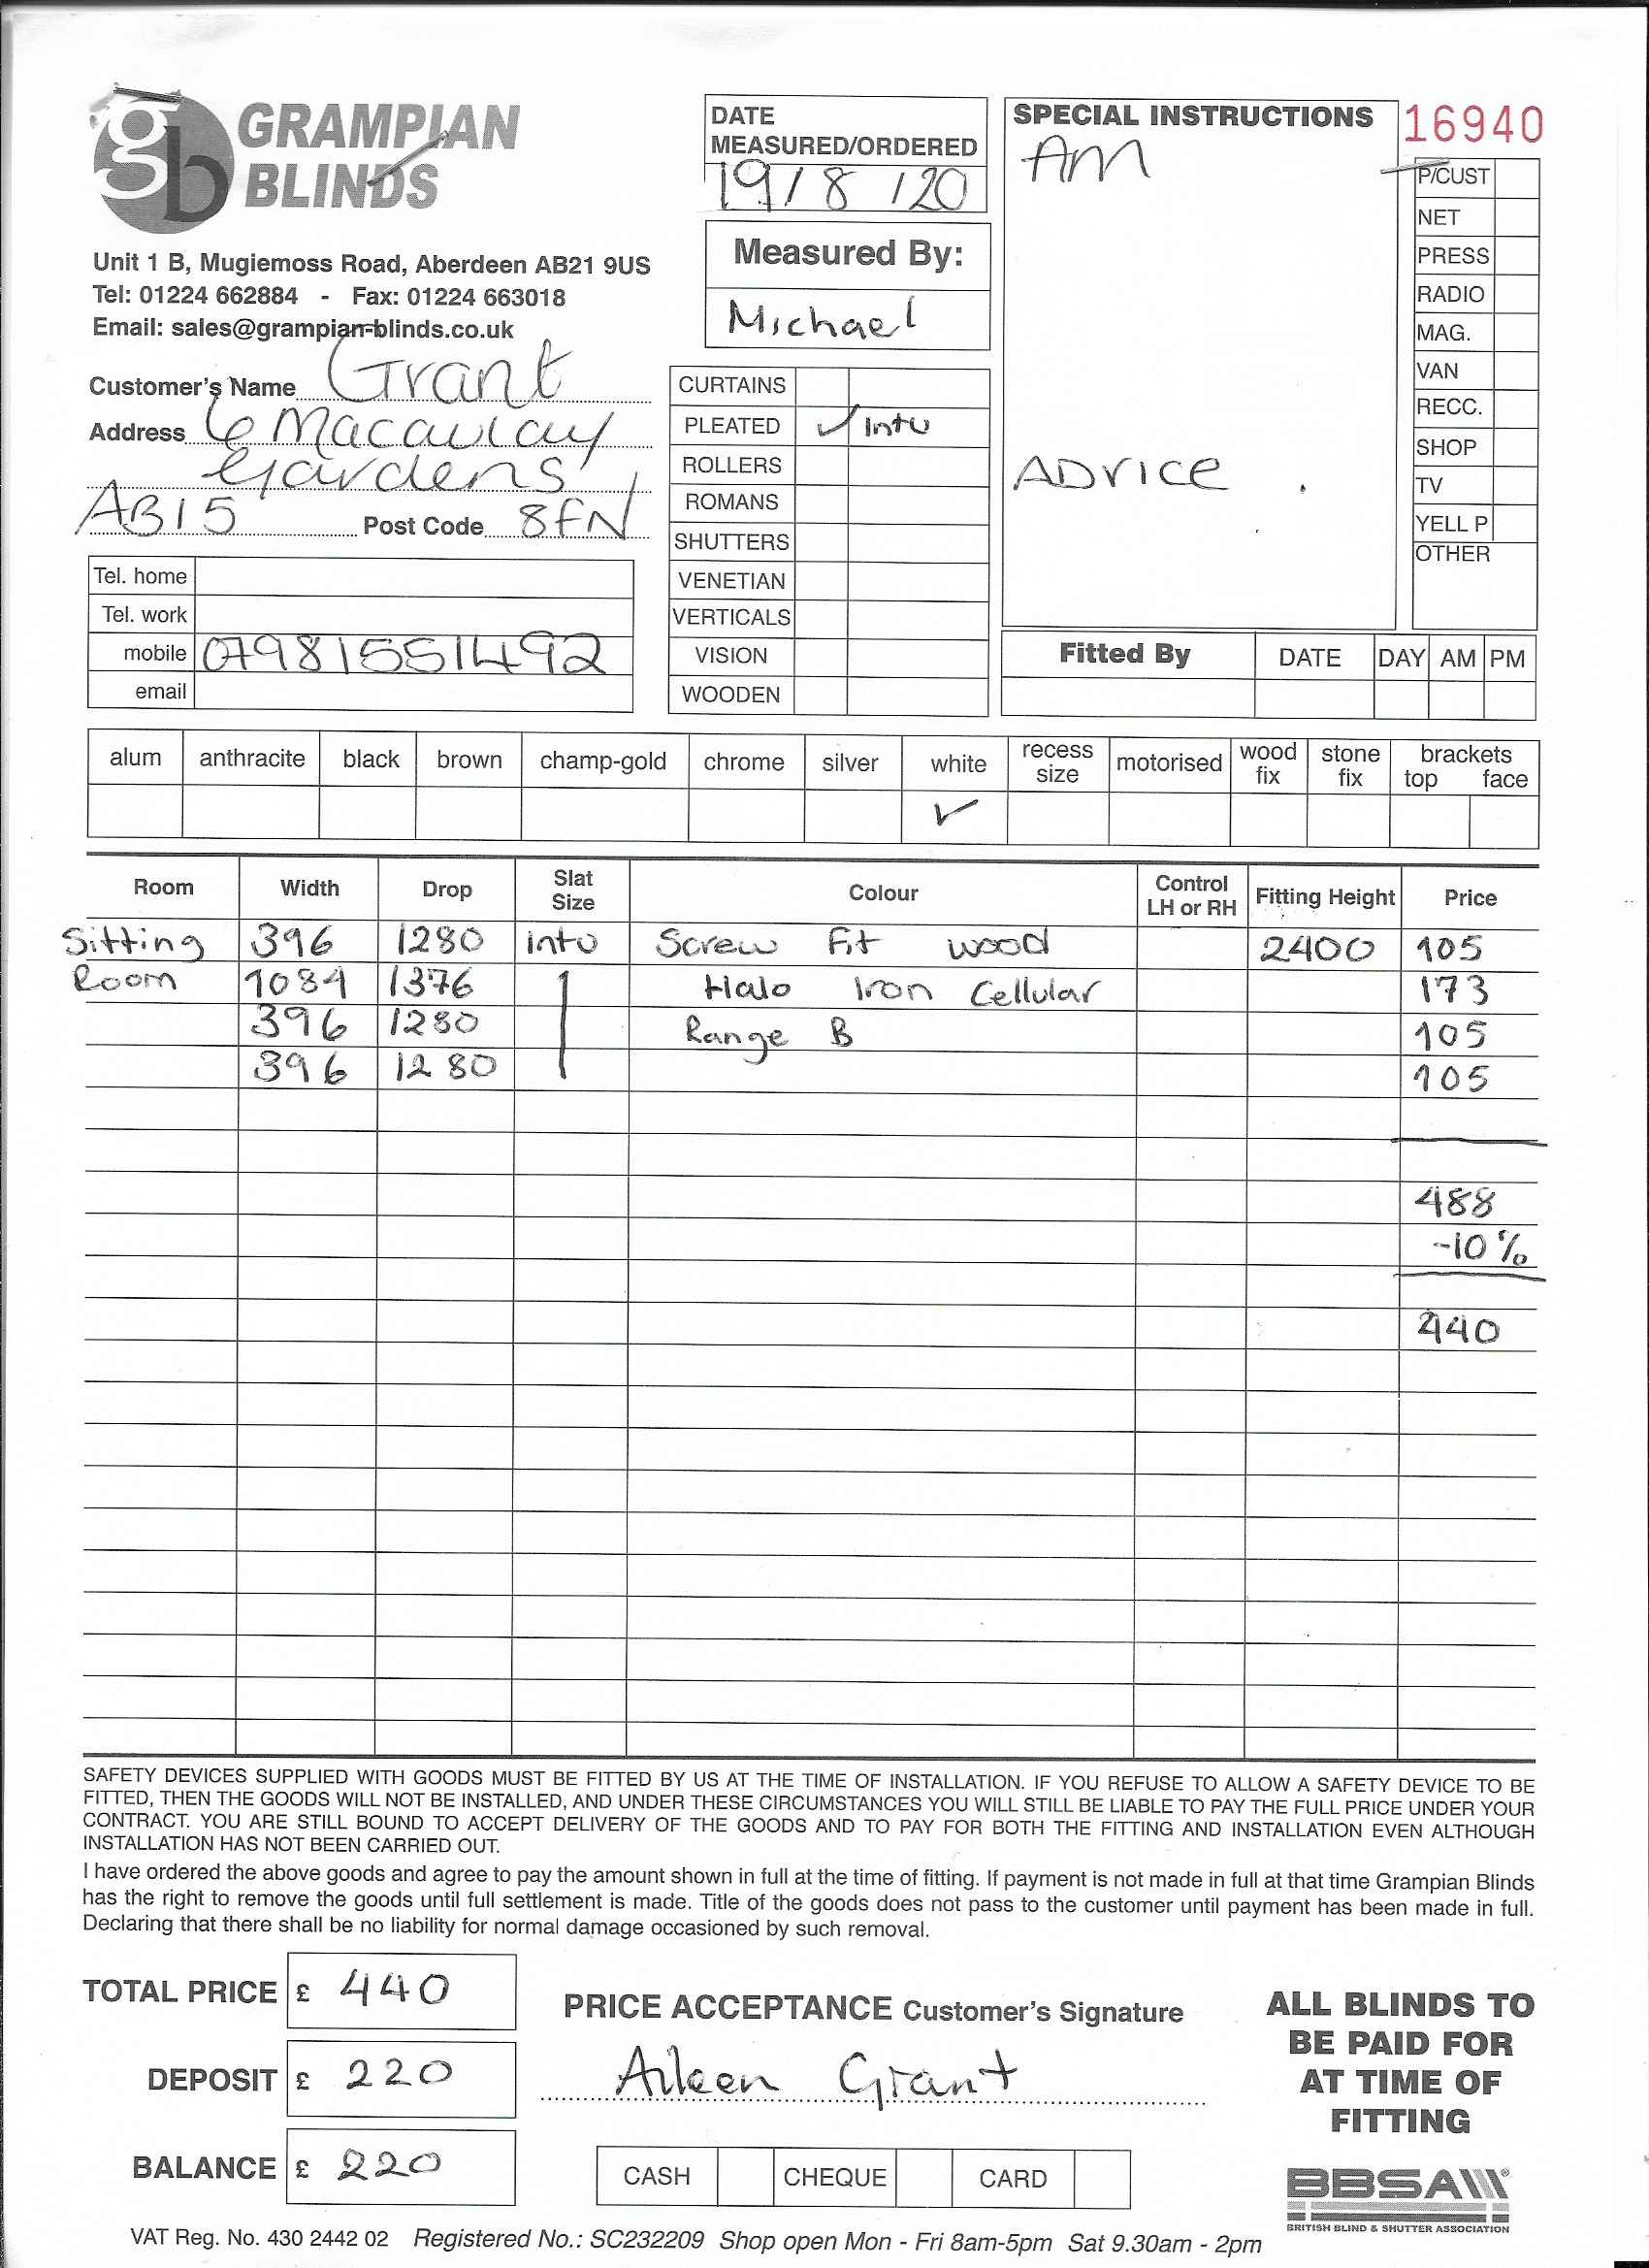 gb GRAMPIAN
BLINDS
Unit 1 B, Mugiemoss Road, Aberdeen AB21 9US
Tel: 01224 662884 - Fax: 01224 663018
Email: sales@grampian-blinds.co.uk
Customer's Name Grant
Address 6 Macaulay
Gardens
AB15 Post Code 8FN
Tel. home
Tel. work
mobile 07981551492
email
DATE
MEASURED/ORDERED
19/8/20
Measured By:
Michael
CURTAINS
PLEATED ✓ Intu
ROLLERS
ROMANS
SHUTTERS
VENETIAN
VERTICALS
VISION
WOODEN
SPECIAL INSTRUCTIONS
AM
ADVICE
16940
P/CUST
NET
PRESS
RADIO
MAG.
VAN
RECC.
SHOP
TV
YELL P
OTHER
Fitted By DATE DAY AM PM
alum anthracite black brown champ-gold chrome silver white recess size motorised wood fix stone fix brackets top face
✓
Room Width Drop Slat Size Colour Control LH or RH Fitting Height Price
Sitting 396 1280 Intu Screw Fit wood 2400 105
Room 1084 1376 Halo Iron Cellular 173
396 1280 Range B 105
396 1280 105
488
-10%
440
SAFETY DEVICES SUPPLIED WITH GOODS MUST BE FITTED BY US AT THE TIME OF INSTALLATION. IF YOU REFUSE TO ALLOW A SAFETY DEVICE TO BE
FITTED, THEN THE GOODS WILL NOT BE INSTALLED, AND UNDER THESE CIRCUMSTANCES YOU WILL STILL BE LIABLE TO PAY THE FULL PRICE UNDER YOUR
CONTRACT. YOU ARE STILL BOUND TO ACCEPT DELIVERY OF THE GOODS AND TO PAY FOR BOTH THE FITTING AND INSTALLATION EVEN ALTHOUGH
INSTALLATION HAS NOT BEEN CARRIED OUT.
I have ordered the above goods and agree to pay the amount shown in full at the time of fitting. If payment is not made in full at that time Grampian Blinds
has the right to remove the goods until full settlement is made. Title of the goods does not pass to the customer until payment has been made in full.
Declaring that there shall be no liability for normal damage occasioned by such removal.
TOTAL PRICE £ 440
DEPOSIT £ 220
BALANCE £ 220
PRICE ACCEPTANCE Customer's Signature
Aileen Grant
CASH CHEQUE CARD
ALL BLINDS TO
BE PAID FOR
AT TIME OF
FITTING
BBSA
BRITISH BLIND & SHUTTER ASSOCIATION
VAT Reg. No. 430 2442 02 Registered No.: SC232209 Shop open Mon - Fri 8am-5pm Sat 9.30am - 2pm